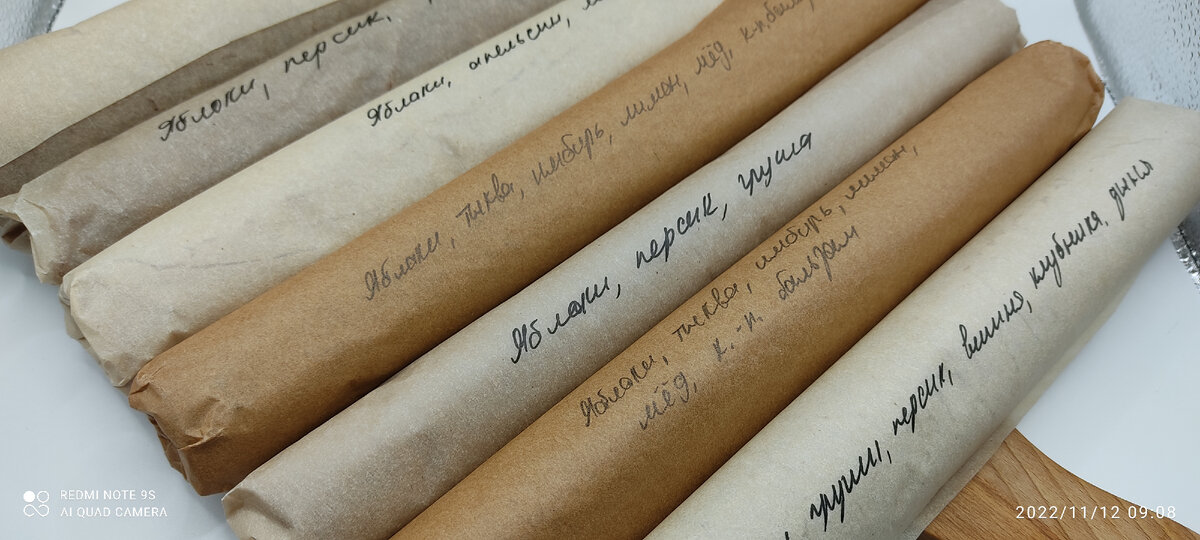 Яблоки, персик,
Яблоки, апельсин,
Яблоки, тыква, имбирь, лимон, мёд, к-п.
Яблоки, персик, груша
Яблоки, тыква, имбирь, лимон,
мёд, к.-п. бальзам
груши, персик, вишня, клубника, дыня
REDMI NOTE 9S
AI QUAD CAMERA
2022/11/12 09:08